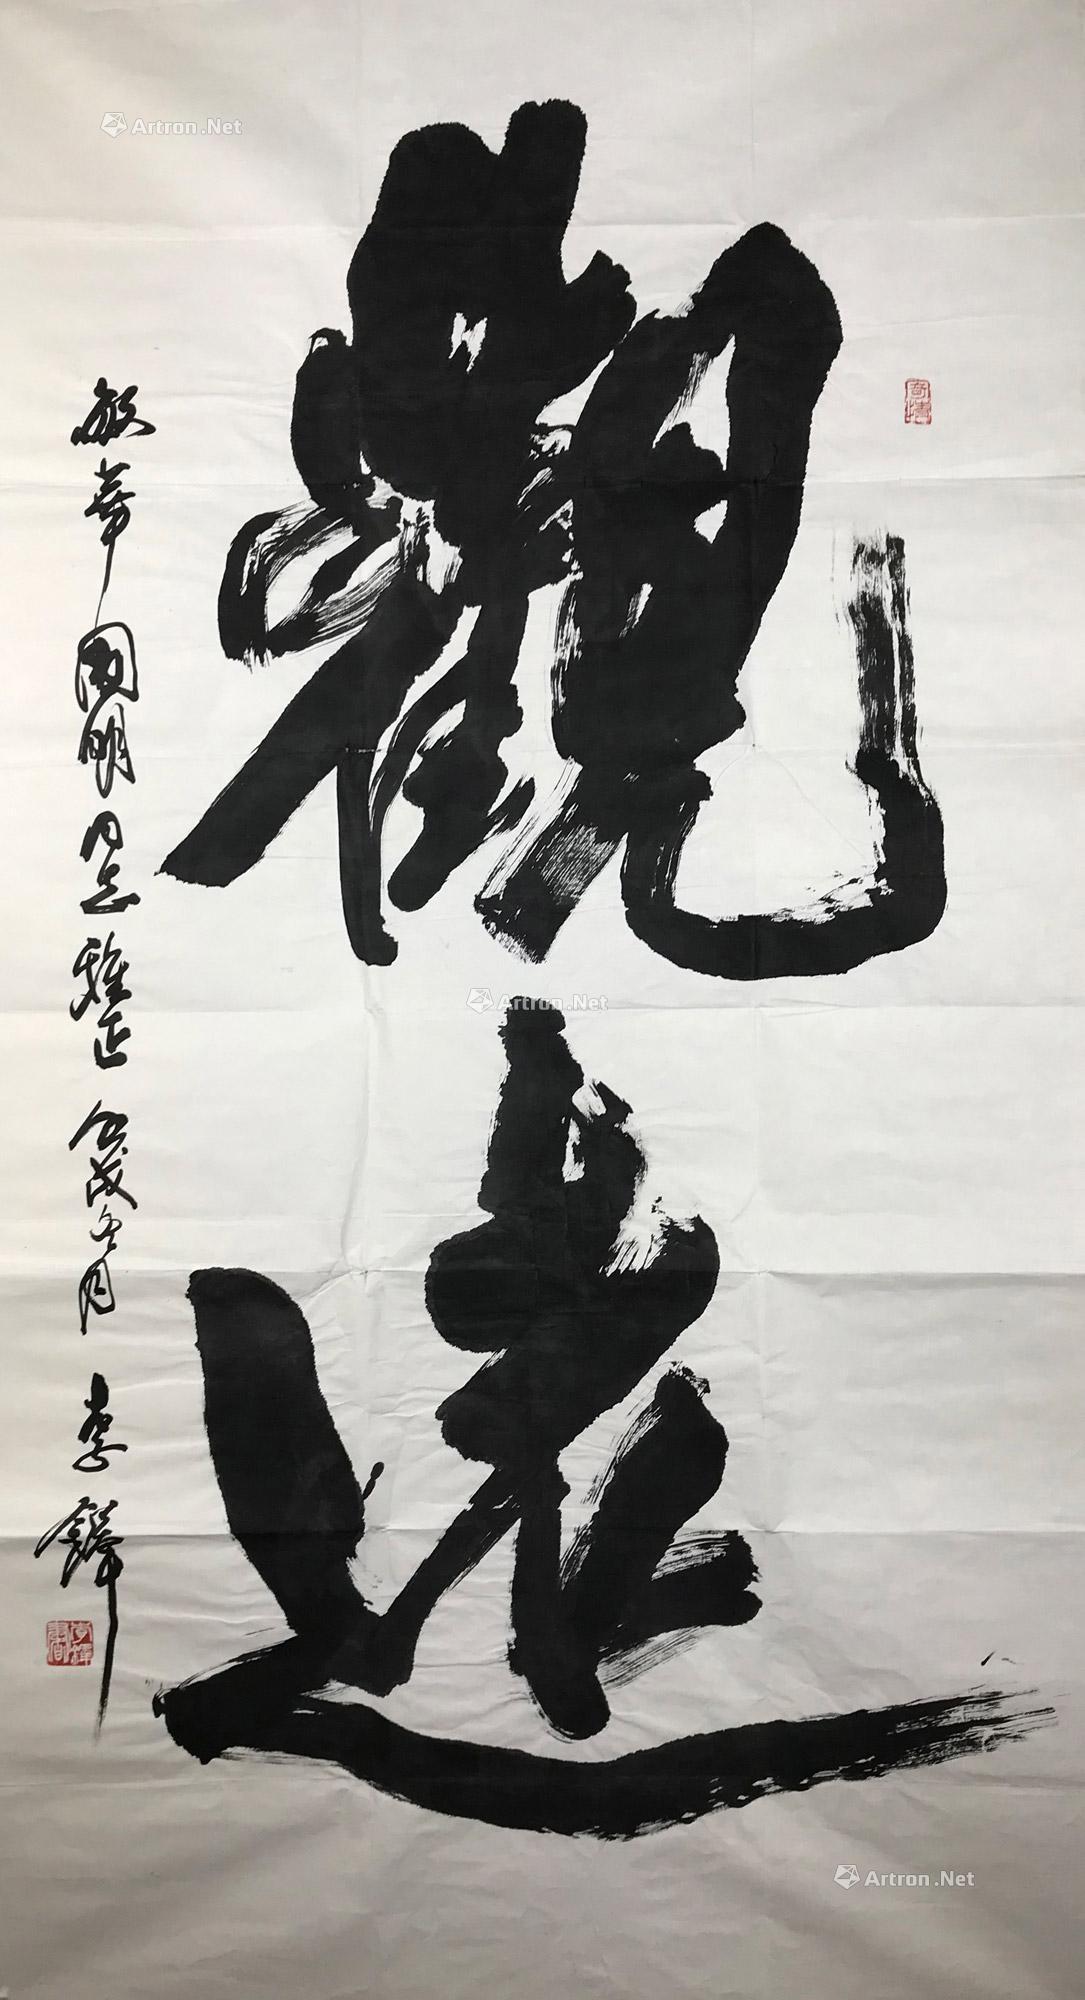 觀遠
敏華國明同志雅正 戊戌冬月 李鐸
Artron.Net
Artron.Net
Artron.Net